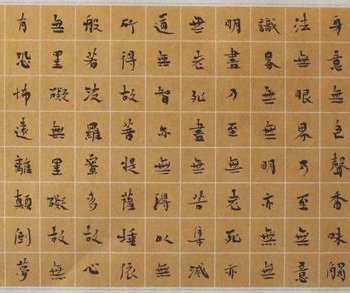 身意無色聲香味觸
法無眼界乃至無意
識界無無明亦無無
明盡乃至無老死亦
無老死盡無苦集滅
道無智亦無得以無
所得故菩提薩埵依
般若波羅蜜多故心
無罣礙無罣礙故無
有恐怖遠離顛倒夢